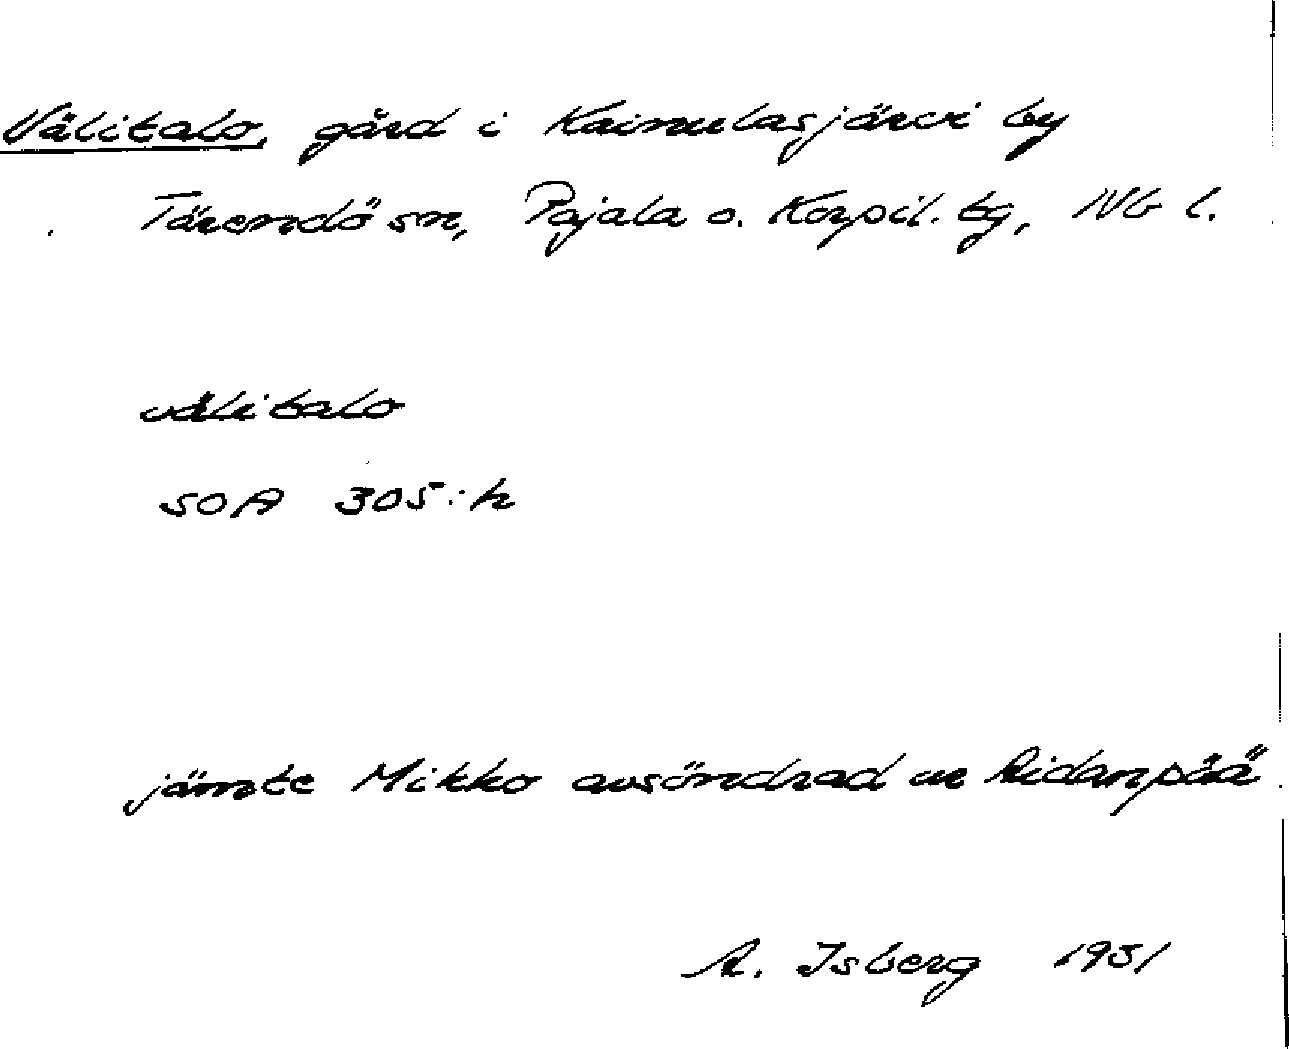 Välitalo, gård i Kainulasjärvi by
Tärendö sn, Pajala o. Korpil. tg, Nb l.
välitalo
SOA 305:h
jämte Mikko avsöndrad ur hidanpää
A. Isberg 1931